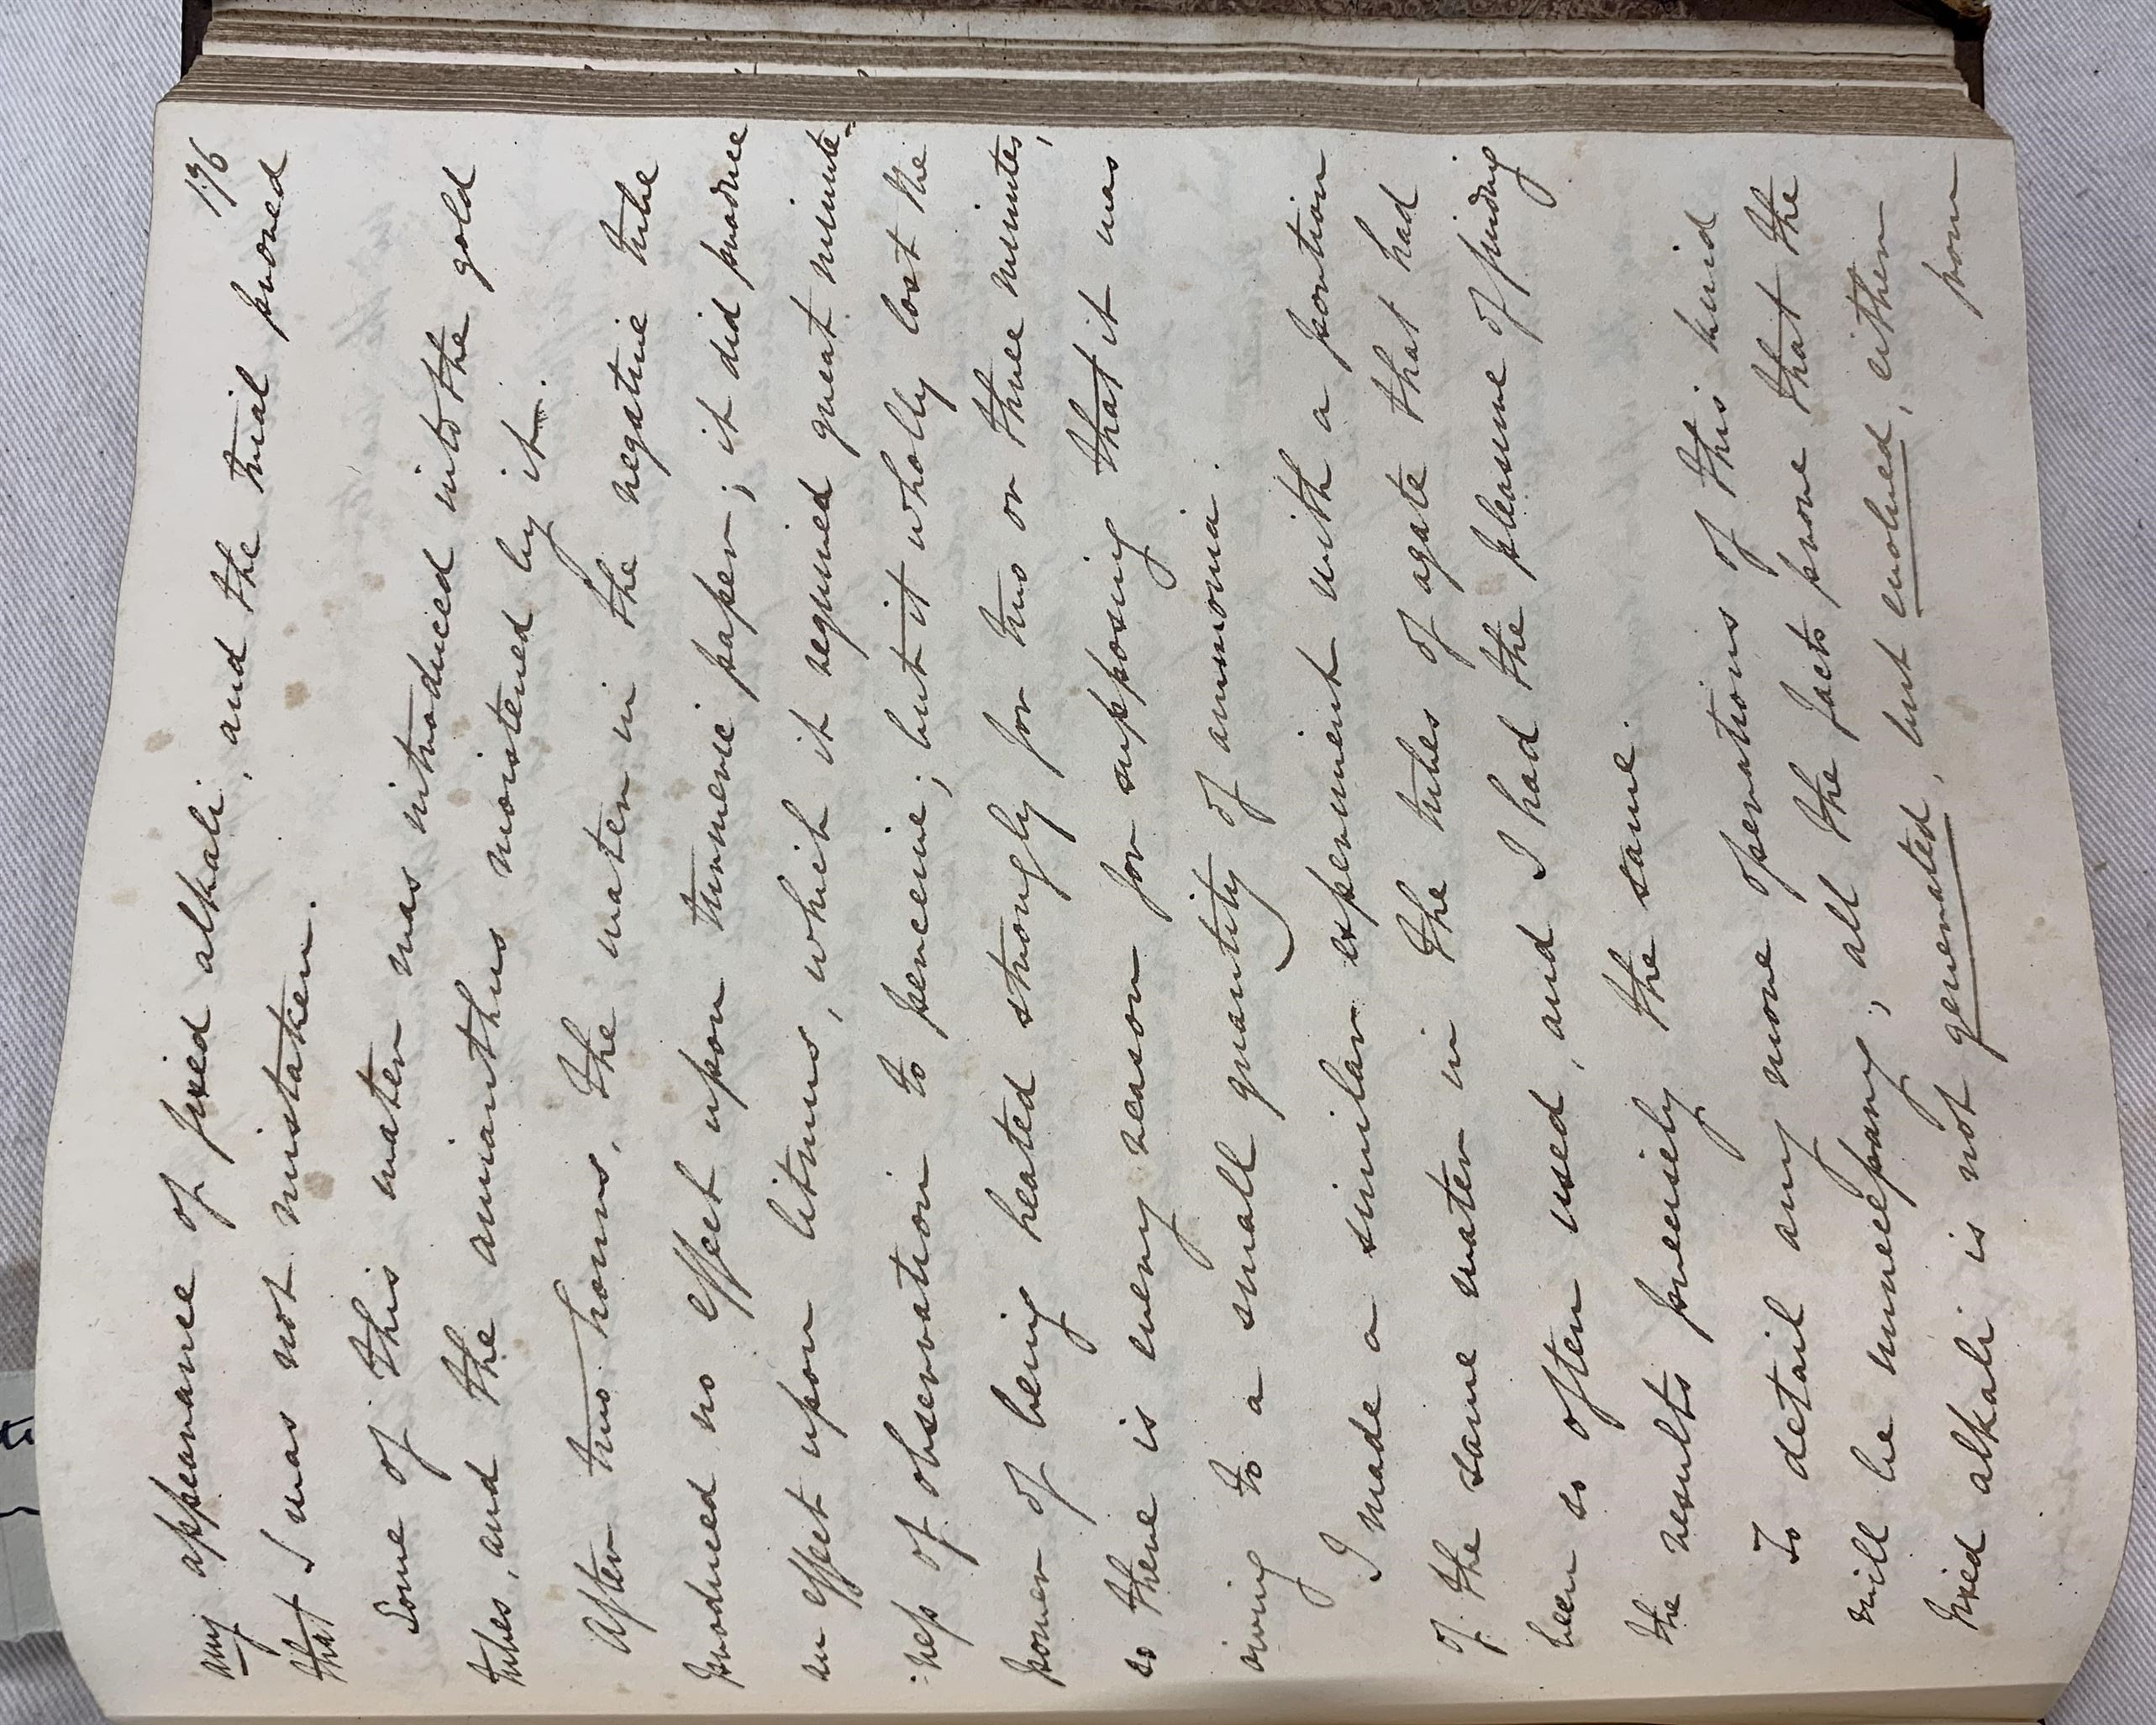 196
any appearance of fixed alkali, and the trial proved
that I was not mistaken.
Some of this water was introduced into the gold
tubes, and the amianthus moistened by it.
After two hours, the water in the negative tube
produced no effect upon turmeric paper; it did produce
an effect upon litmus, which it required great minute-
-ness of observation to perceive; but it wholly lost the
power of being heated strongly for two or three minutes,
so there is every reason for supposing that it was
owing to a small quantity of ammonia.
I made a similar experiment with a portion
of the same water in the tubes of agate that had
been so often used, and I had the pleasure of finding
the results precisely the same.
To detail any more operations of this kind
will be unnecessary; all the facts prove that the
fixed alkali is not generated, but evolved, either
from